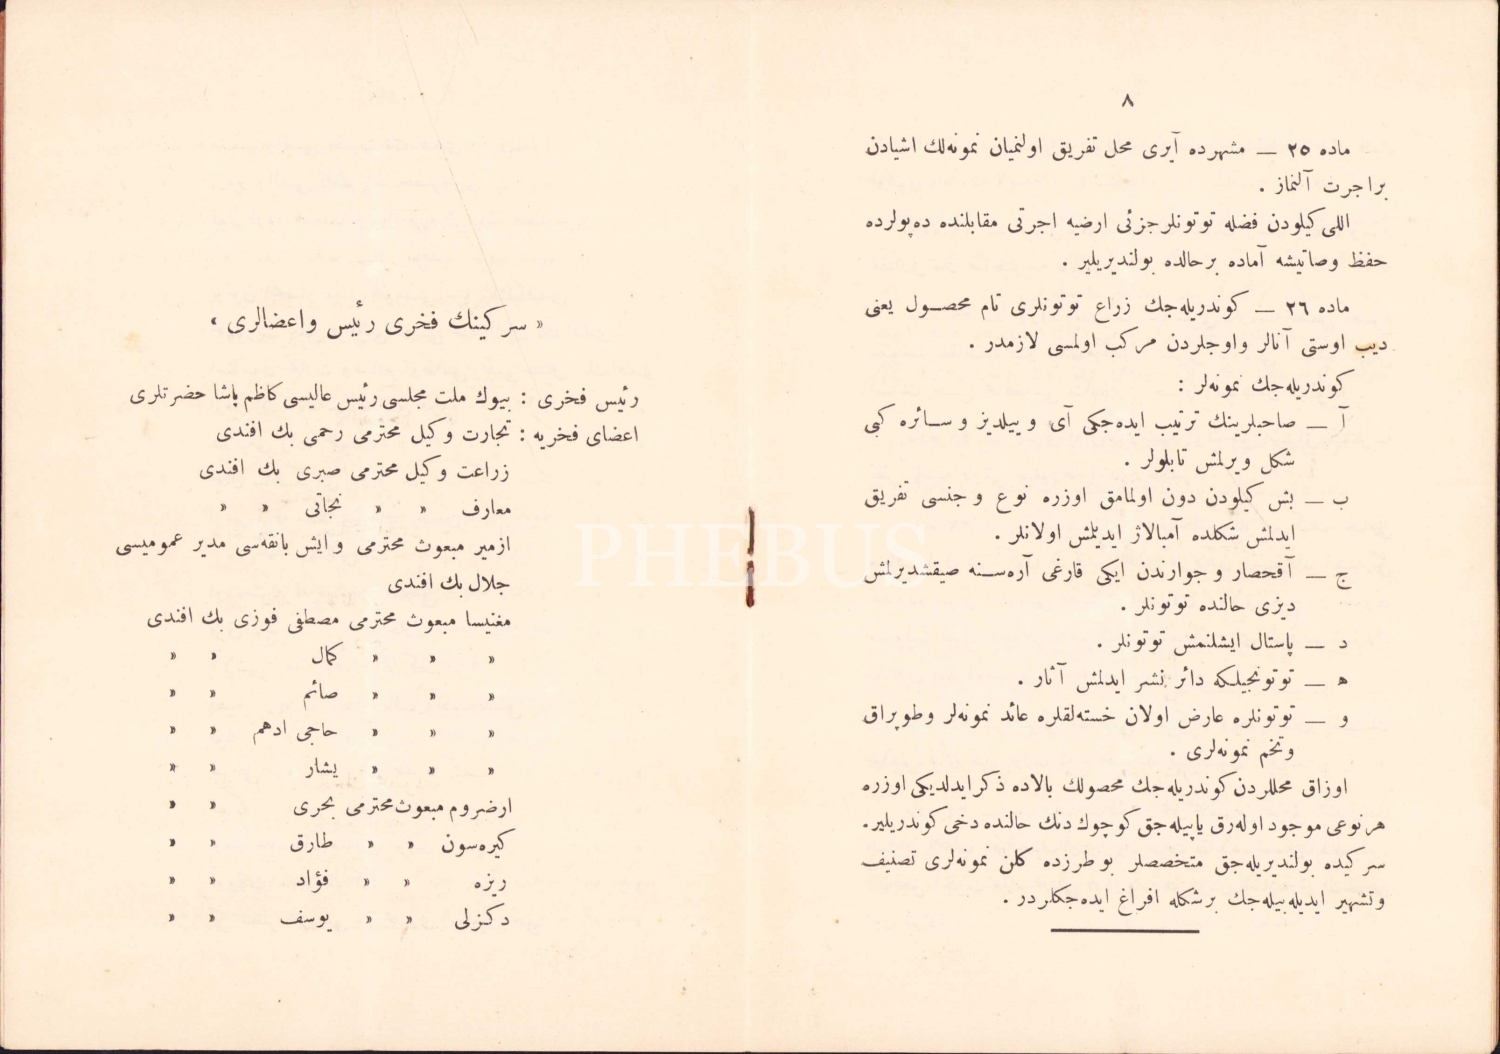 ٨
ماده ٢٥ — مشهرده آیری محل تفریق اولنمیان نمونه‌لك اشیادن
براجرت آلنماز .
اللی كیلودن فضله توتونلر جزئی ارضیه اجرتی مقابلنده ده‌پولرده
حفظ وصاتیشه آماده برحالده بولندیریلیر .
ماده ٢٦ — كوندریله‌جك زراع توتونلری تام محصول یعنی
دیب اوستی آنالر واوجلردن مركب اولمسی لازمدر .
كوندریله‌جك نمونه‌لر :
آ — صاحبلرینك ترتیب ایده‌جكی آی و ییلدیز و سائره كبی
شكل ویرلمش تابلولر .
ب — بش كیلودن دون اولمامق اوزره نوع و جنسی تفریق
ایدلمش شكلده آمبالاژ ایدیلمش اولانلر .
ج — آقحصار و جوارندن ایكی قارغی آره‌سنه صیقشدیرلمش
دیزی حالنده توتونلر .
د — پاستال ایشلنمش توتونلر .
ه — توتونجیلكه دائر نشر ایدلمش آثار .
و — توتونلره عارض اولان خسته‌لقلره عائد نمونه‌لر وطوپراق
وتخم نمونه‌لری .
اوزاق محللردن كوندریله‌جك محصولك بالاده ذكر ایدلدیكی اوزره
هرنوعی موجود اوله‌رق یاپیله‌جق كوچوك دنك حالنده دخی كوندریلیر .
سركیده بولندیریله‌جق متخصصلر بوطرزده كلن نمونه‌لری تصنیف
وتشهیر ایدیله‌بیله‌جك برشكله افراغ ایده‌جكلردر .
« سركینك فخری رئیس واعضالری »
رئیس فخری : بیوك ملت مجلسی رئیس عالیسی كاظم پاشا حضرتلری
اعضای فخریه : تجارت وكیل محترمی رحمی بك افندی
زراعت وكیل محترمی صبری بك افندی
معارف » » نجاتی » »
ازمیر مبعوث محترمی وایش بانقه‌سی مدیر عمومیسی
جلال بك افندی
مغنیسا مبعوث محترمی مصطفی فوزی بك افندی
» » » كمال » »
» » » صائم » »
» » » حاجی ادهم » »
» » » یشار » »
ارضروم مبعوث محترمی بحری » »
كیره‌سون » » طارق » »
ریزه » » فؤاد » »
دكزلی » » یوسف » »
PHEBUS